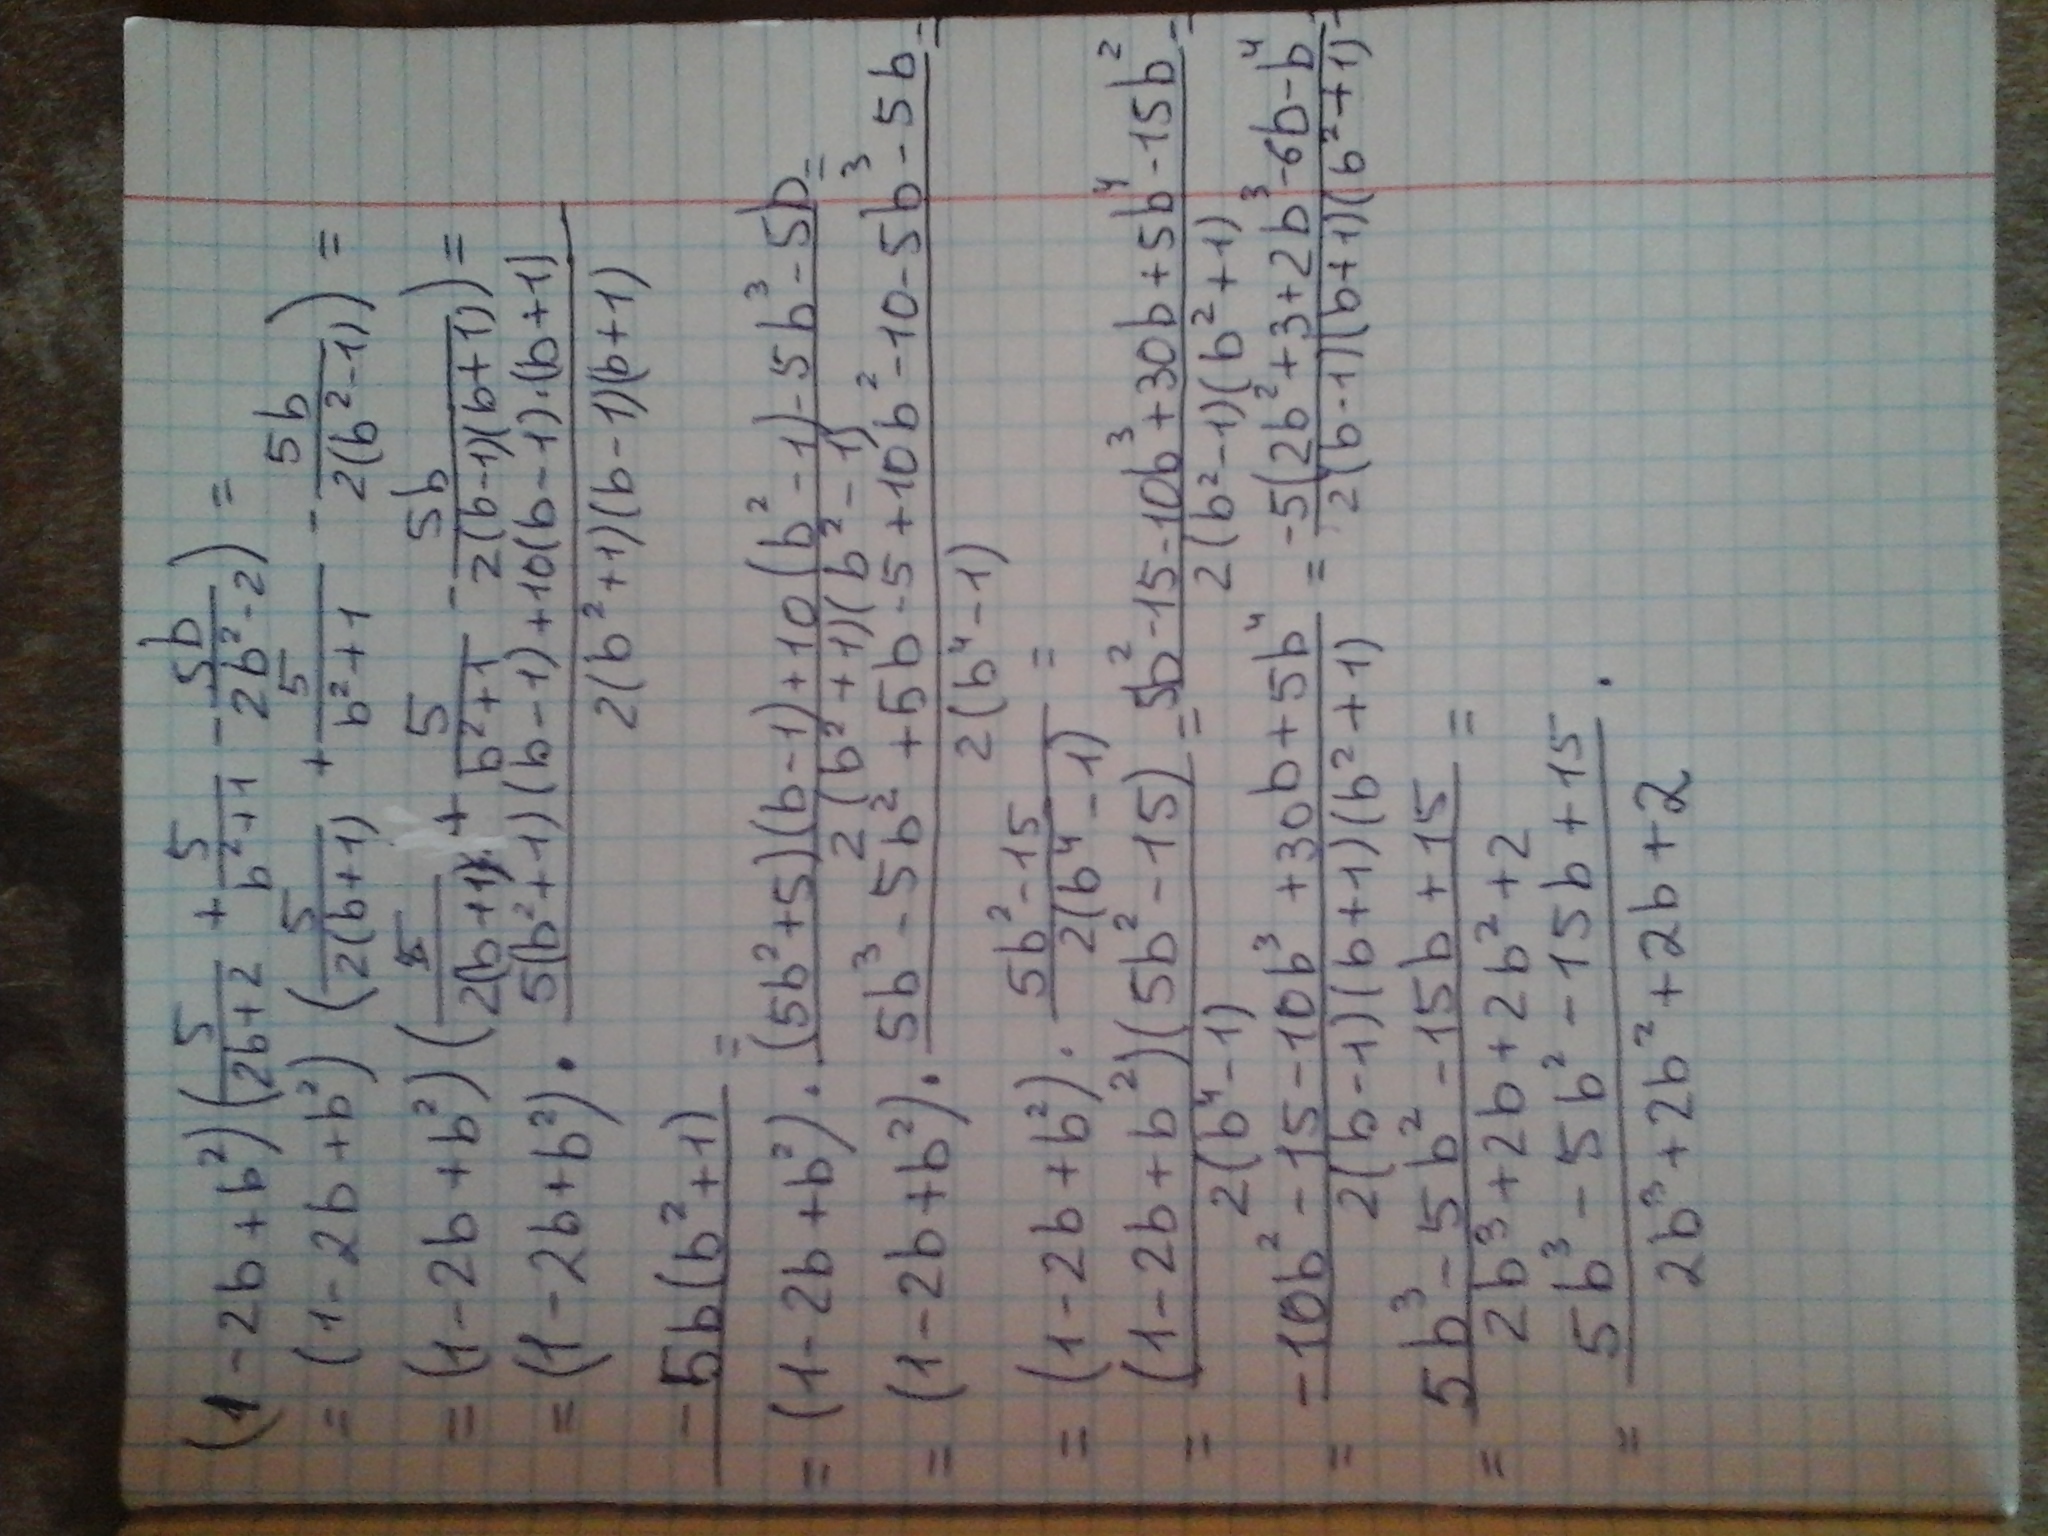 (1 - 2b + b²)(5/(2b+2) + 5/(b²+1) - 5b/(2b²-2)) =
= (1 - 2b + b²)(5/(2(b+1)) + 5/(b²+1) - 5b/(2(b²-1))) =
= (1 - 2b + b²)(5/(2(b+1)) + 5/(b²+1) - 5b/(2(b-1)(b+1))) =
= (1 - 2b + b²) · (5(b²+1)(b-1) + 10(b-1)·(b+1)
2(b²+1)(b-1)(b+1)
- 5b(b²+1) =
= (1 - 2b + b²) · ((5b²+5)(b-1) + 10(b²-1) - 5b³ - 5b)/(2(b²+1)(b²-1)) =
= (1 - 2b + b²) · (5b³ - 5b² + 5b - 5 + 10b² - 10 - 5b³ - 5b)/(2(b⁴-1)) =
= (1 - 2b + b²) · (5b² - 15)/(2(b⁴-1)) =
= ((1 - 2b + b²)(5b² - 15))/(2(b⁴-1)) = (5b² - 15 - 10b³ + 30b + 5b⁴ - 15b²)/(2(b²-1)(b²+1)) =
= (-10b² - 15 - 10b³ + 30b + 5b⁴)/(2(b-1)(b+1)(b²+1)) = (-5(2b² + 3 + 2b³ - 6b - b⁴))/(2(b-1)(b+1)(b²+1)) =
= (5b³ - 5b² - 15b + 15)/(2b³ + 2b + 2b² + 2) =
= (5b³ - 5b² - 15b + 15)/(2b³ + 2b² + 2b + 2) .